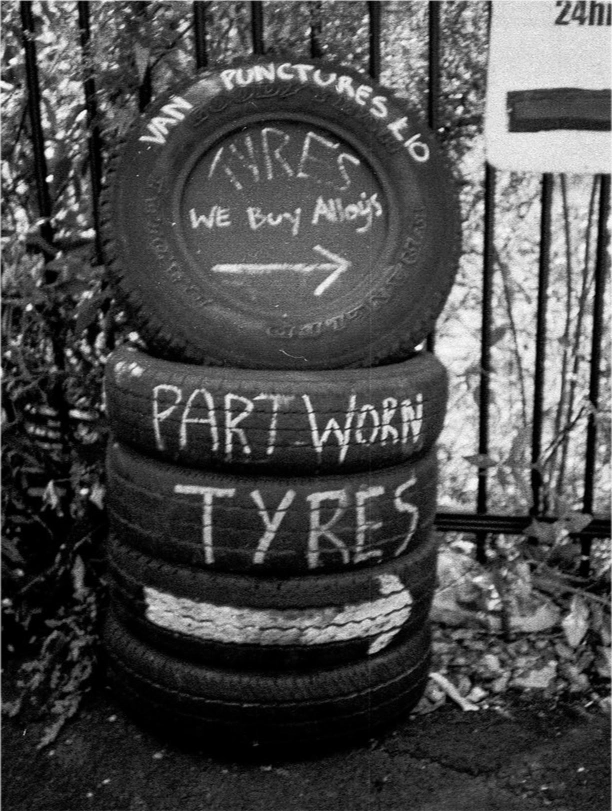 24h
VAN PUNCTURES £10
TYRES
WE Buy Alloys
PART WORN
TYRES